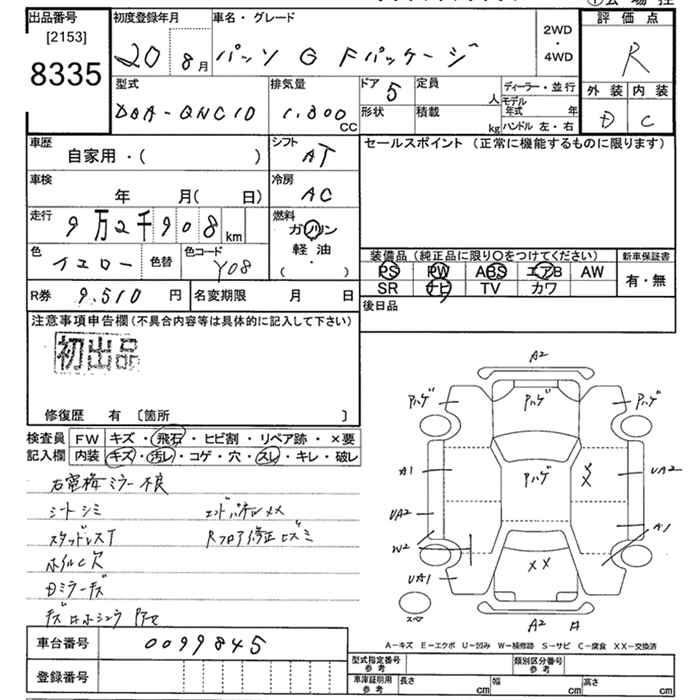 出品番号
[2153]
8335
初度登録年月
20 8月
車名・グレード
パッソ G Fパッケージ
2WD
・
4WD
評価点
R
外装 内装
D C
型式
DBA-QNC10
排気量
1,300
CC
ドア 5
形状
定員
人
積載
kg
ディーラー・並行
モデル年式 年
ハンドル 左・右
車歴
自家用・( )
シフト
AT
車検
年 月( 日)
冷房
AC
走行
9万2千908 km
燃料
ガソリン
軽・油
( ・ )
色
イエロー
色替
色コード
Y08
R券 9,510 円
名変期限 月 日
セールスポイント (正常に機能するものに限ります)
装備品 (純正品に限り○をつけてください)
PS PW ABS エアB AW
SR ナビ TV カワ
新車保証書
有・無
後日品
注意事項申告欄(不具合内容等は具体的に記入して下さい)
初出品
修復歴 有 [箇所 ]
検査員記入欄
FW キズ・飛石・ヒビ割・リペア跡・×要
内装 キズ・汚レ・コゲ・穴・スレ・キレ・破レ
右電格ミラー不良
シートシミ
エンドパネルXX
スタッドレスT
Rフロア修正ヒズミ
ホイルC欠
Dミラーキズ
A2
Pハゲ
Pハゲ
Pハゲ
A1
Pハゲ
XX
UA2
UA2
A1
W2
XX
UA1
スペア
A2
A-キズ E-エクボ U-凹み W-補修跡 S-サビ C-腐食 XX-交換済
車台番号 0099845
登録番号
型式指定番号
参考
類別区分番号
参考
車庫証明用
参考
長さ cm
幅 cm
高さ cm